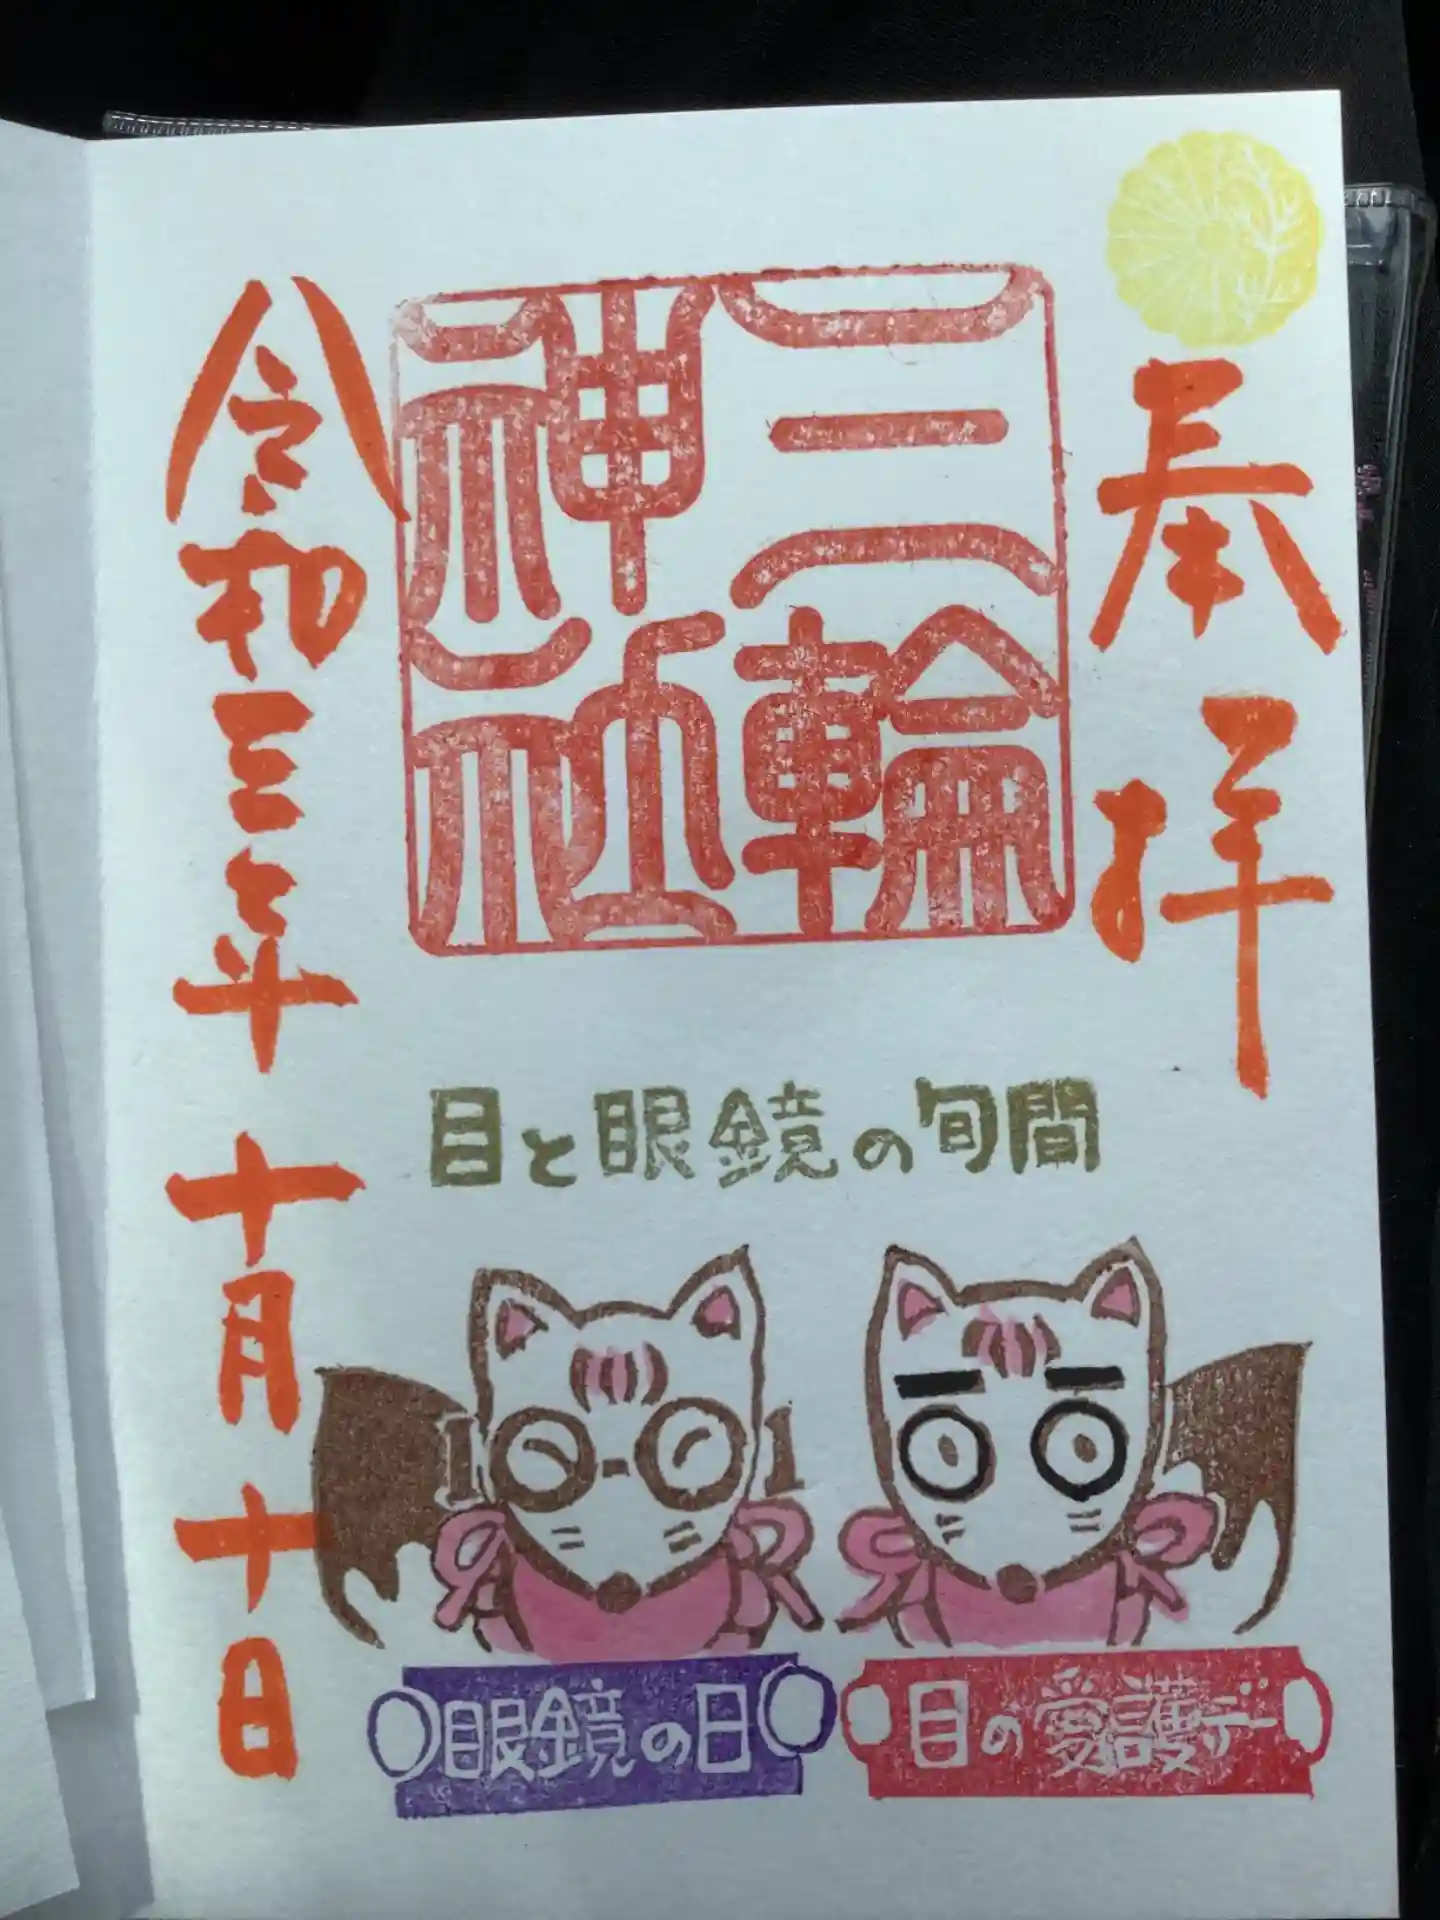 奉拝
三輪
神社
令和三年十月十日
目と眼鏡の旬間
10-01
眼鏡の日
目の愛護デー